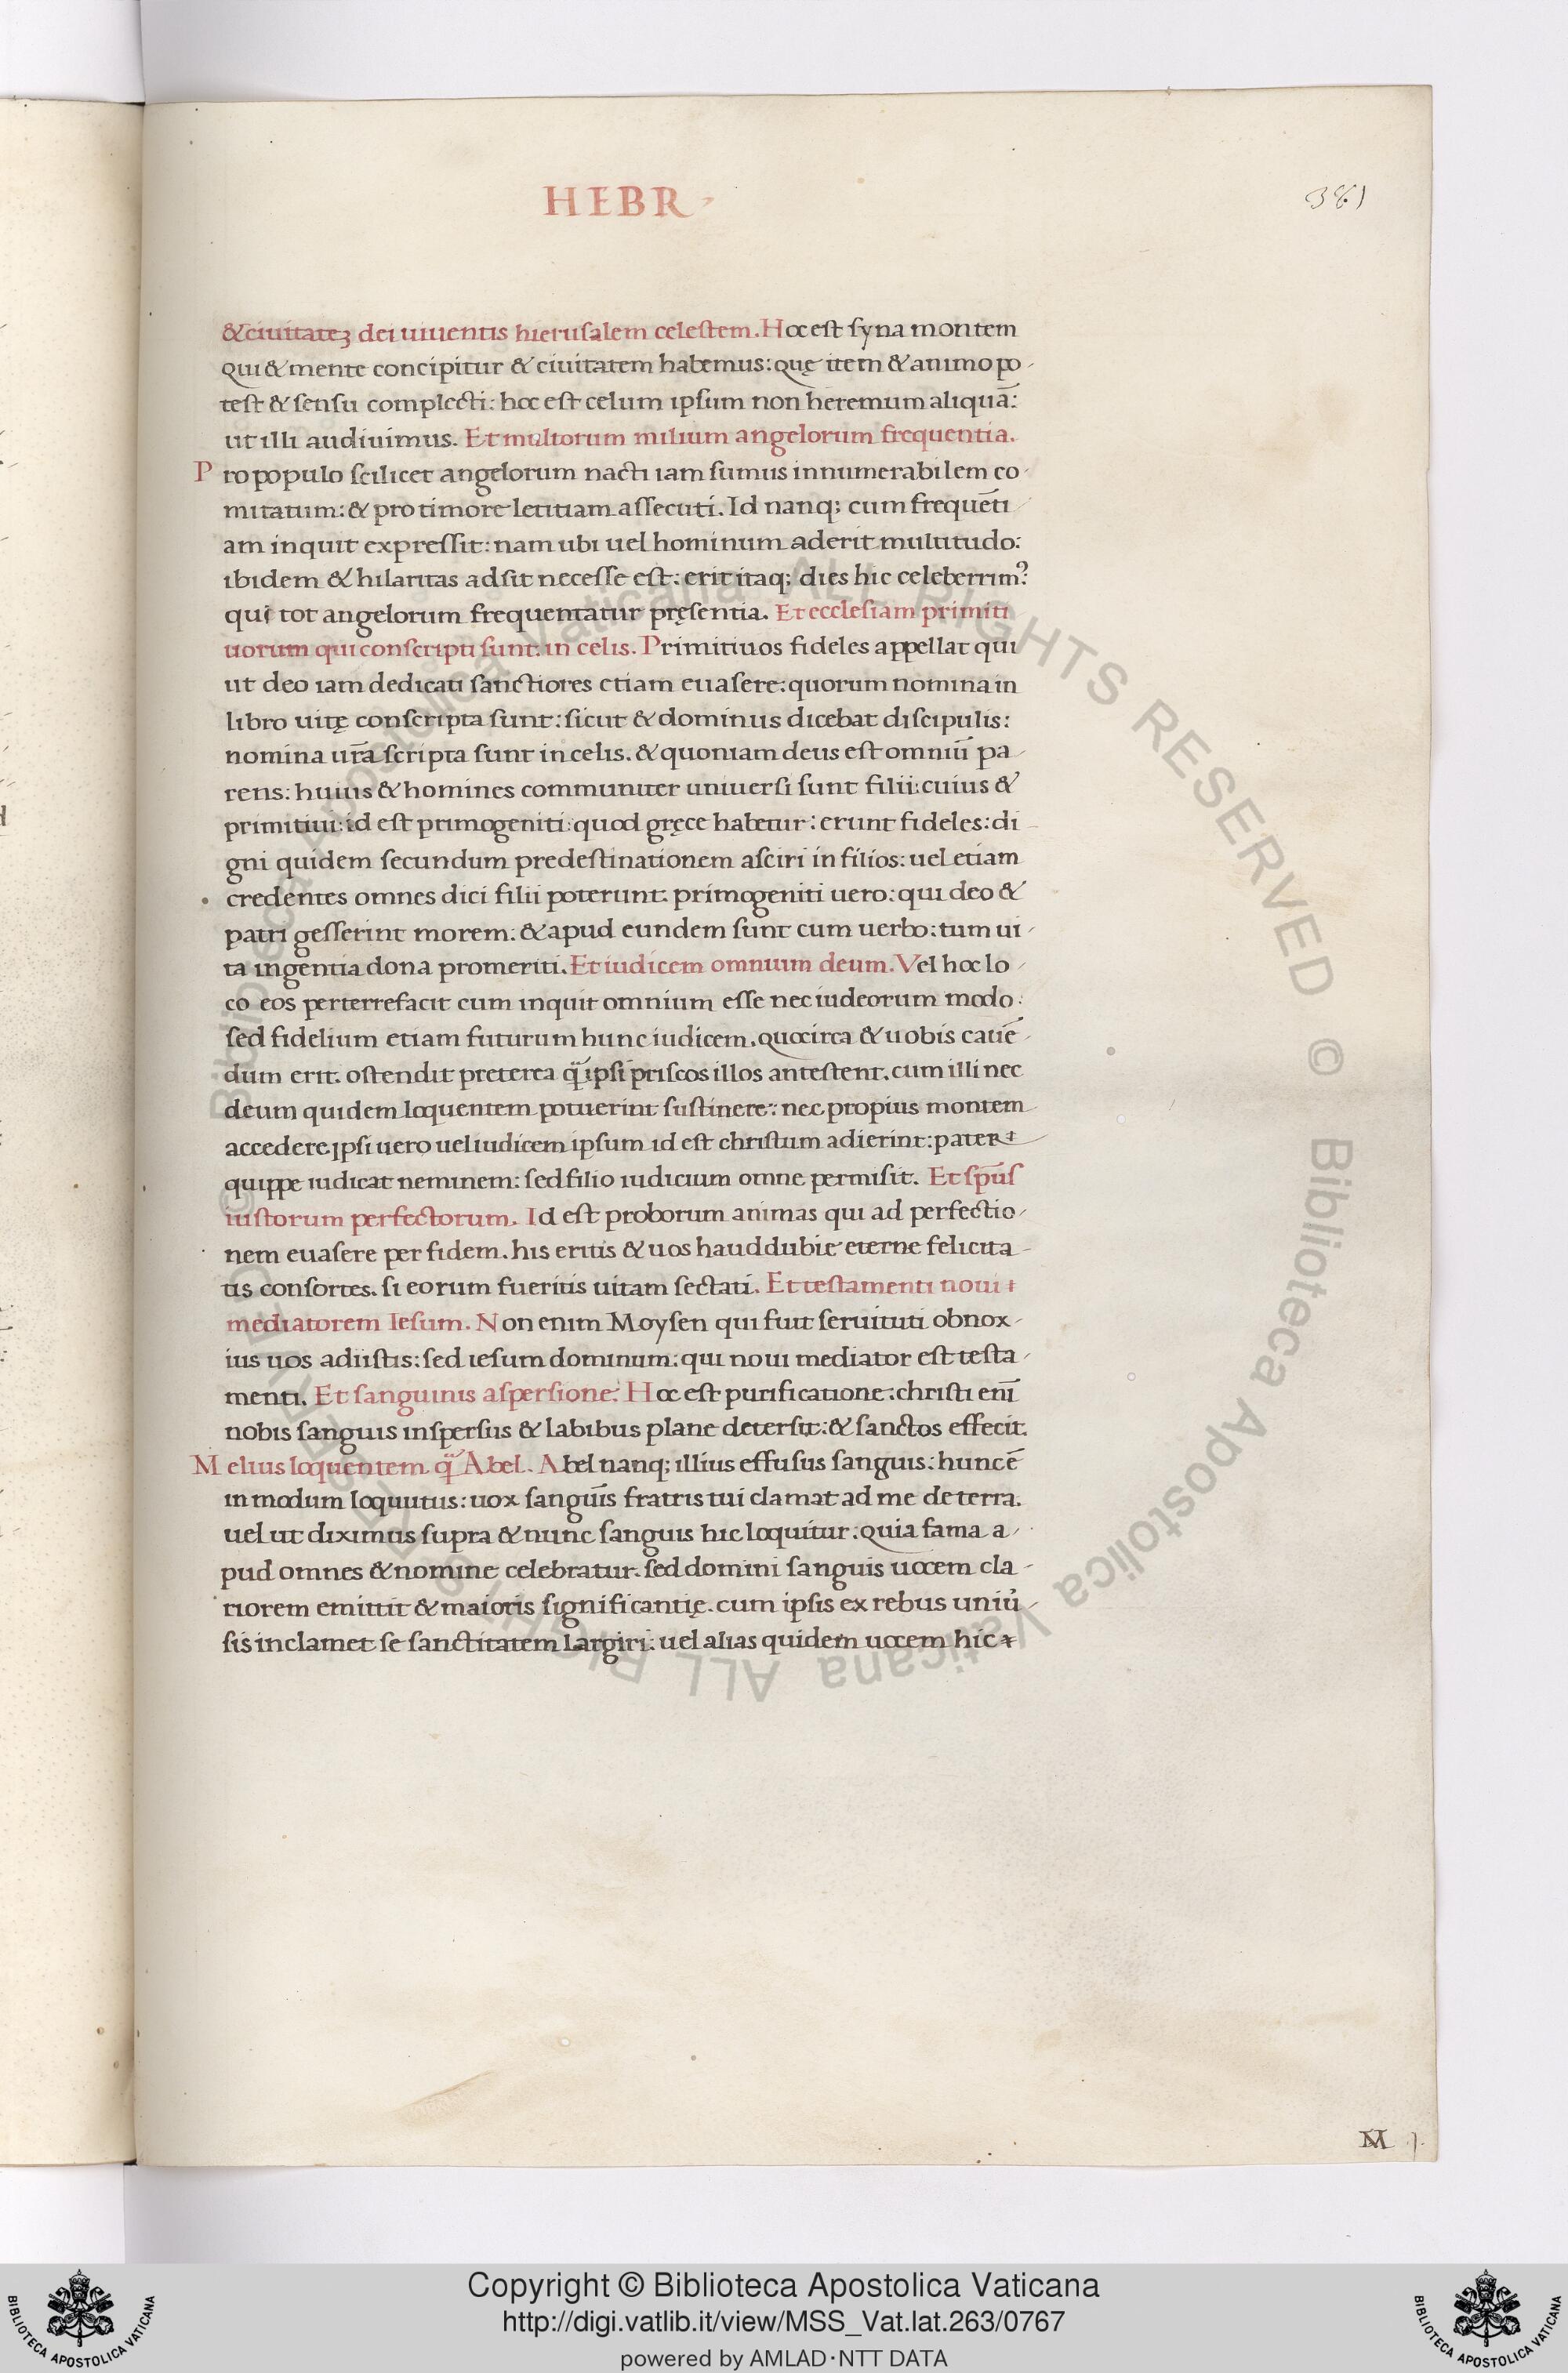 HEBR
381
& ciuitateȝ dei uiuentis hierusalem celestem. Hoc est syna montem
qui & mente concipitur & ciuitatem habemus: quę item & animo po-
test & sensu complecti: hoc est celum ipsum non heremum aliquā:
ut illi audiuimus. Et multorum milium angelorum frequentia.
Pro populo scilicet angelorum nacti iam sumus innumerabilem co-
mitatum: & pro timore letitiam assecuti. Id nanq; cum frequēti-
am inquit expressit: nam ubi uel hominum aderit multitudo:
ibidem & hilaritas adsit necesse est: erit itaq; dies hic celeberrimꝰ
qui tot angelorum frequentatur pręsentia. Et ecclesiam primiti
uorum qui conscripti sunt in celis. Primitiuos fideles appellat qui
ut deo iam dedicati sanctiores etiam euasere: quorum nomina in
libro uitę conscripta sunt: sicut & dominus dicebat discipulis:
nomina ur̄a scripta sunt in celis. & quoniam deus est omniū pa-
rens: huius & homines communiter uniuersi sunt filii: cuius &
primitiui: id est primogeniti: quod gręce habetur: erunt fideles: di-
gni quidem secundum predestinationem asciri in filios: uel etiam
credentes omnes dici filii poterunt. primogeniti uero: qui deo &
patri gesserint morem: & apud eundem sunt cum uerbo: tum ui-
ta ingentia dona promeriti. Et iudicem omnium deum. Vel hoc lo-
co eos perterrefacit cum inquit omnium esse nec iudeorum modo:
sed fidelium etiam futurum hunc iudicem. quocirca & uobis cauē
dum erit. ostendit preterea q̄ ipsi priscos illos antestent. cum illi nec
deum quidem loquentem potuerint sustinere: nec propius montem
accedere. ipsi uero uel iudicem ipsum id est christum adierint: pater
quippe iudicat neminem: sed filio iudicium omne permisit. Et sp̄us
iustorum perfectorum. Id est proborum animas qui ad perfectio-
nem euasere per fidem. his eritis & uos haud dubie eterne felicita-
tis consortes. si eorum fueritis uitam sectati. Et testamenti noui
mediatorem Iesum. Non enim Moysen qui fuit seruituti obnox-
ius uos adiistis: sed iesum dominum: qui noui mediator est testa-
menti. Et sanguinis aspersione: Hoc est purificatione: christi enī
nobis sanguis inspersus & labibus plane detersit: & sanctos effecit.
Melius loquentem q̄ Abel. Abel nanq; illius effusus sanguis: huncē
in modum loquutus: uox sanguīs fratris tui clamat ad me de terra.
uel ut diximus supra & nunc sanguis hic loquitur: quia fama a-
pud omnes & nomine celebratur. sed domini sanguis uocem cla-
riorem emittit & maioris significantię. cum ipsis ex rebus uniu᷑-
sis inclamet se sanctitatem largiri: uel alias quidem uocem hic
M 1.
© Biblioteca Apostolica Vaticana ALL RIGHTS RESERVED © Biblioteca Apostolica Vaticana ALL RIGHTS RESERVED
Copyright © Biblioteca Apostolica Vaticana
http://digi.vatlib.it/view/MSS_Vat.lat.263/0767
powered by AMLAD·NTT DATA
BIBLIOTECA APOSTOLICA VATICANA
BIBLIOTECA APOSTOLICA VATICANA